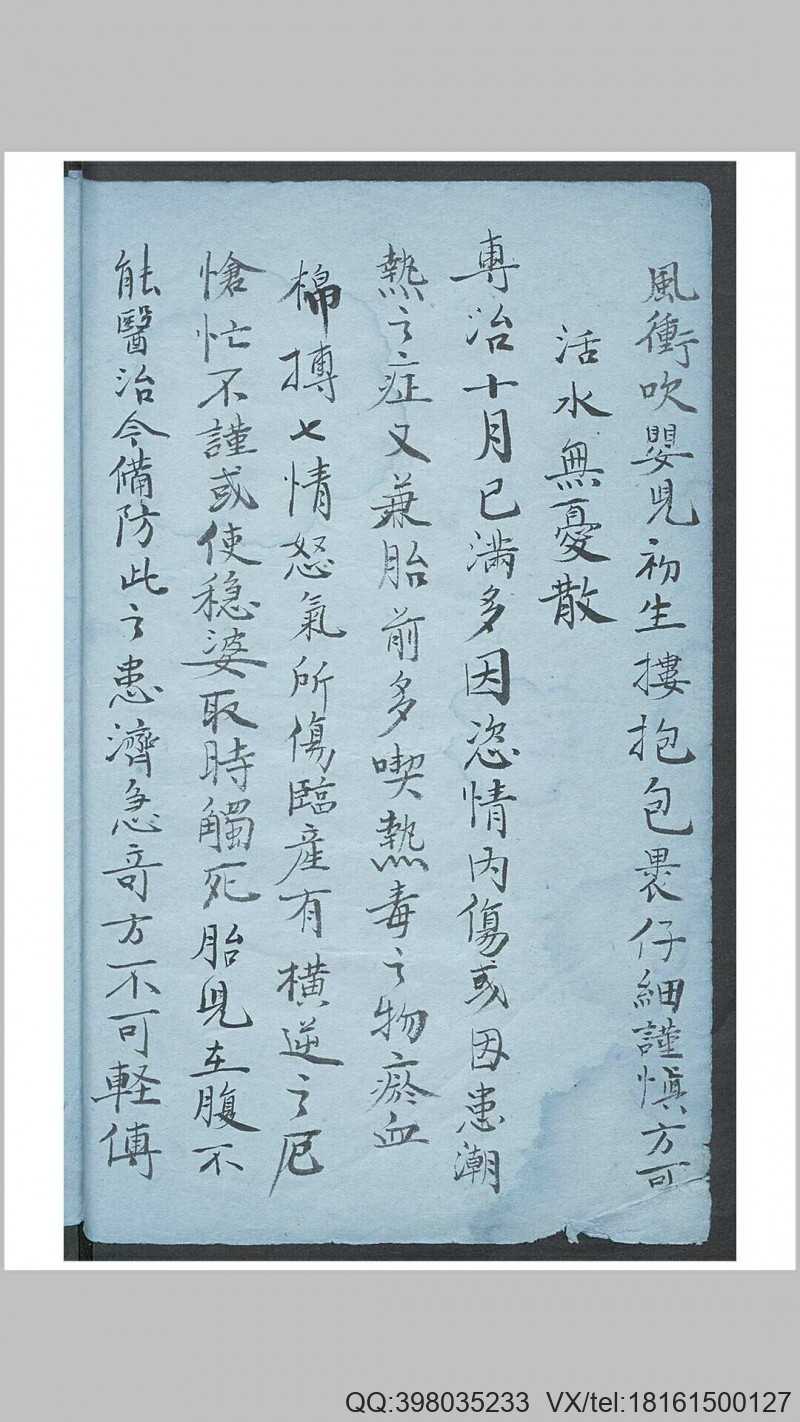 風衝吹嬰児初生摟抱包裹仔細謹慎方可
活水無憂散
專治十月已滿多因恣情内傷或因患潮
熱之症又兼胎前多喫熱毒之物瘀血
棉搏七情怒氣所傷臨產有橫逆之厄
愴忙不謹或使穏婆取時觸死胎児在腹不
能醫治今備防此之患濟急奇方不可軽傳
QQ:398035233 VX/tel:18161500127